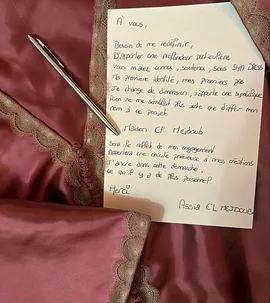 À vous,
Besoin de me redéfinir,
D'apporter une profondeur particulière
Vous m'avez connus, soutenus, sous SYA DRESS
Ma première identité, mes premiers pas
Je change de dimension, j'apporte une symbolique
Rien ne me semblait plus juste que d'offrir mon
nom à ce projet
Maison El Mejdoub
Sera le reflet de mon engagement
Apportera une envolée précieuse à mes créations
J'ancre dans cette démarche,
ce qu'il y a de plus personnel.
Merci
Assia EL MEJDOUB